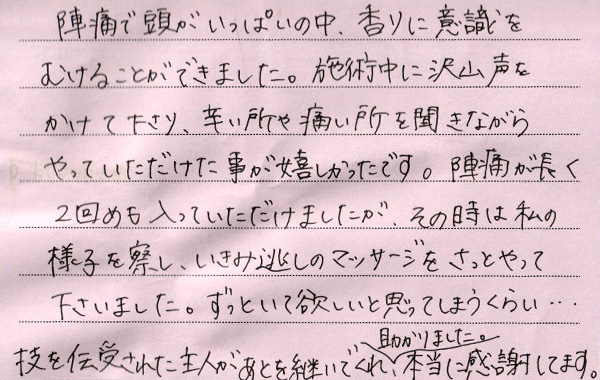 陣痛で頭がいっぱいの中、香りに意識を
むけることができました。施術中に沢山声を
かけて下さり、辛い所や痛い所を聞きながら
やっていただけた事が嬉しかったです。陣痛が長く
2回めも入っていただけましたが、その時は私の
様子を察し、いきみ逃しのマッサージをさっとやって
下さいました。ずっといて欲しいと思ってしまうくらい…
助かりました。
技を伝受された主人があとを継いでくれ、本当に感謝してます。